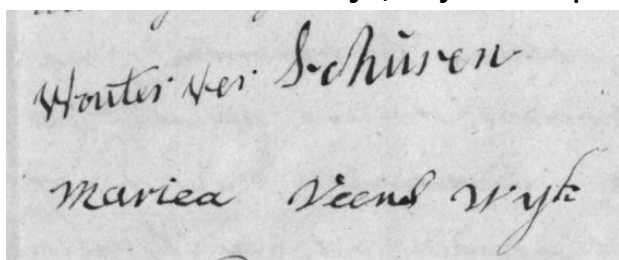 Wouter ver Schüren
mariea Veend wyk